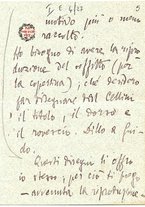 I E 4/23
motivo più o meno
raccolti.
Ho bisogno di avere la ripro-
duzione del soffitto (per la
copertina), che desidero
far disegnare dal Cellini
il titolo, il dorso e
il rovescio. Dillo a Gui-
do.
Questi disegni ti offro
io stesso; per ciò ti prego -
avvenuta la riproduzione -